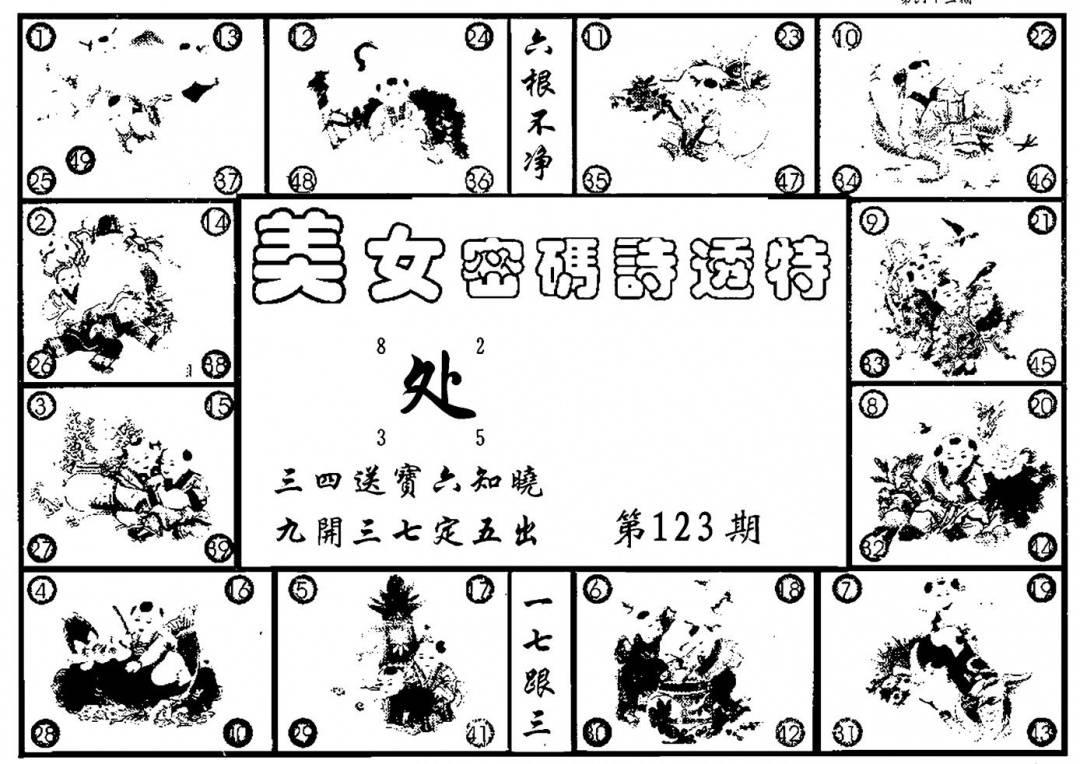 ① ⑬
㊾
㉕ ㊲
⑫ ㉔
㊽ ㊱
六根不净
⑪ ㉓
㉟ ㊼
⑩ ㉒
㉞ ㊻
② ⑭
㉖ ㊳
美女密碼詩透特
8 2
处
3 5
三四送寶六知曉
九開三七定五出
第123期
⑨ ㉑
㉝ ㊺
③ ⑮
㉗ ㊴
⑧ ⑳
㉜ ㊹
④ ⑯
㉘ ㊵
⑤ ⑰
㉙ ㊶
一七跟三
⑥ ⑱
㉚ ㊷
⑦ ⑲
㉛ ㊸